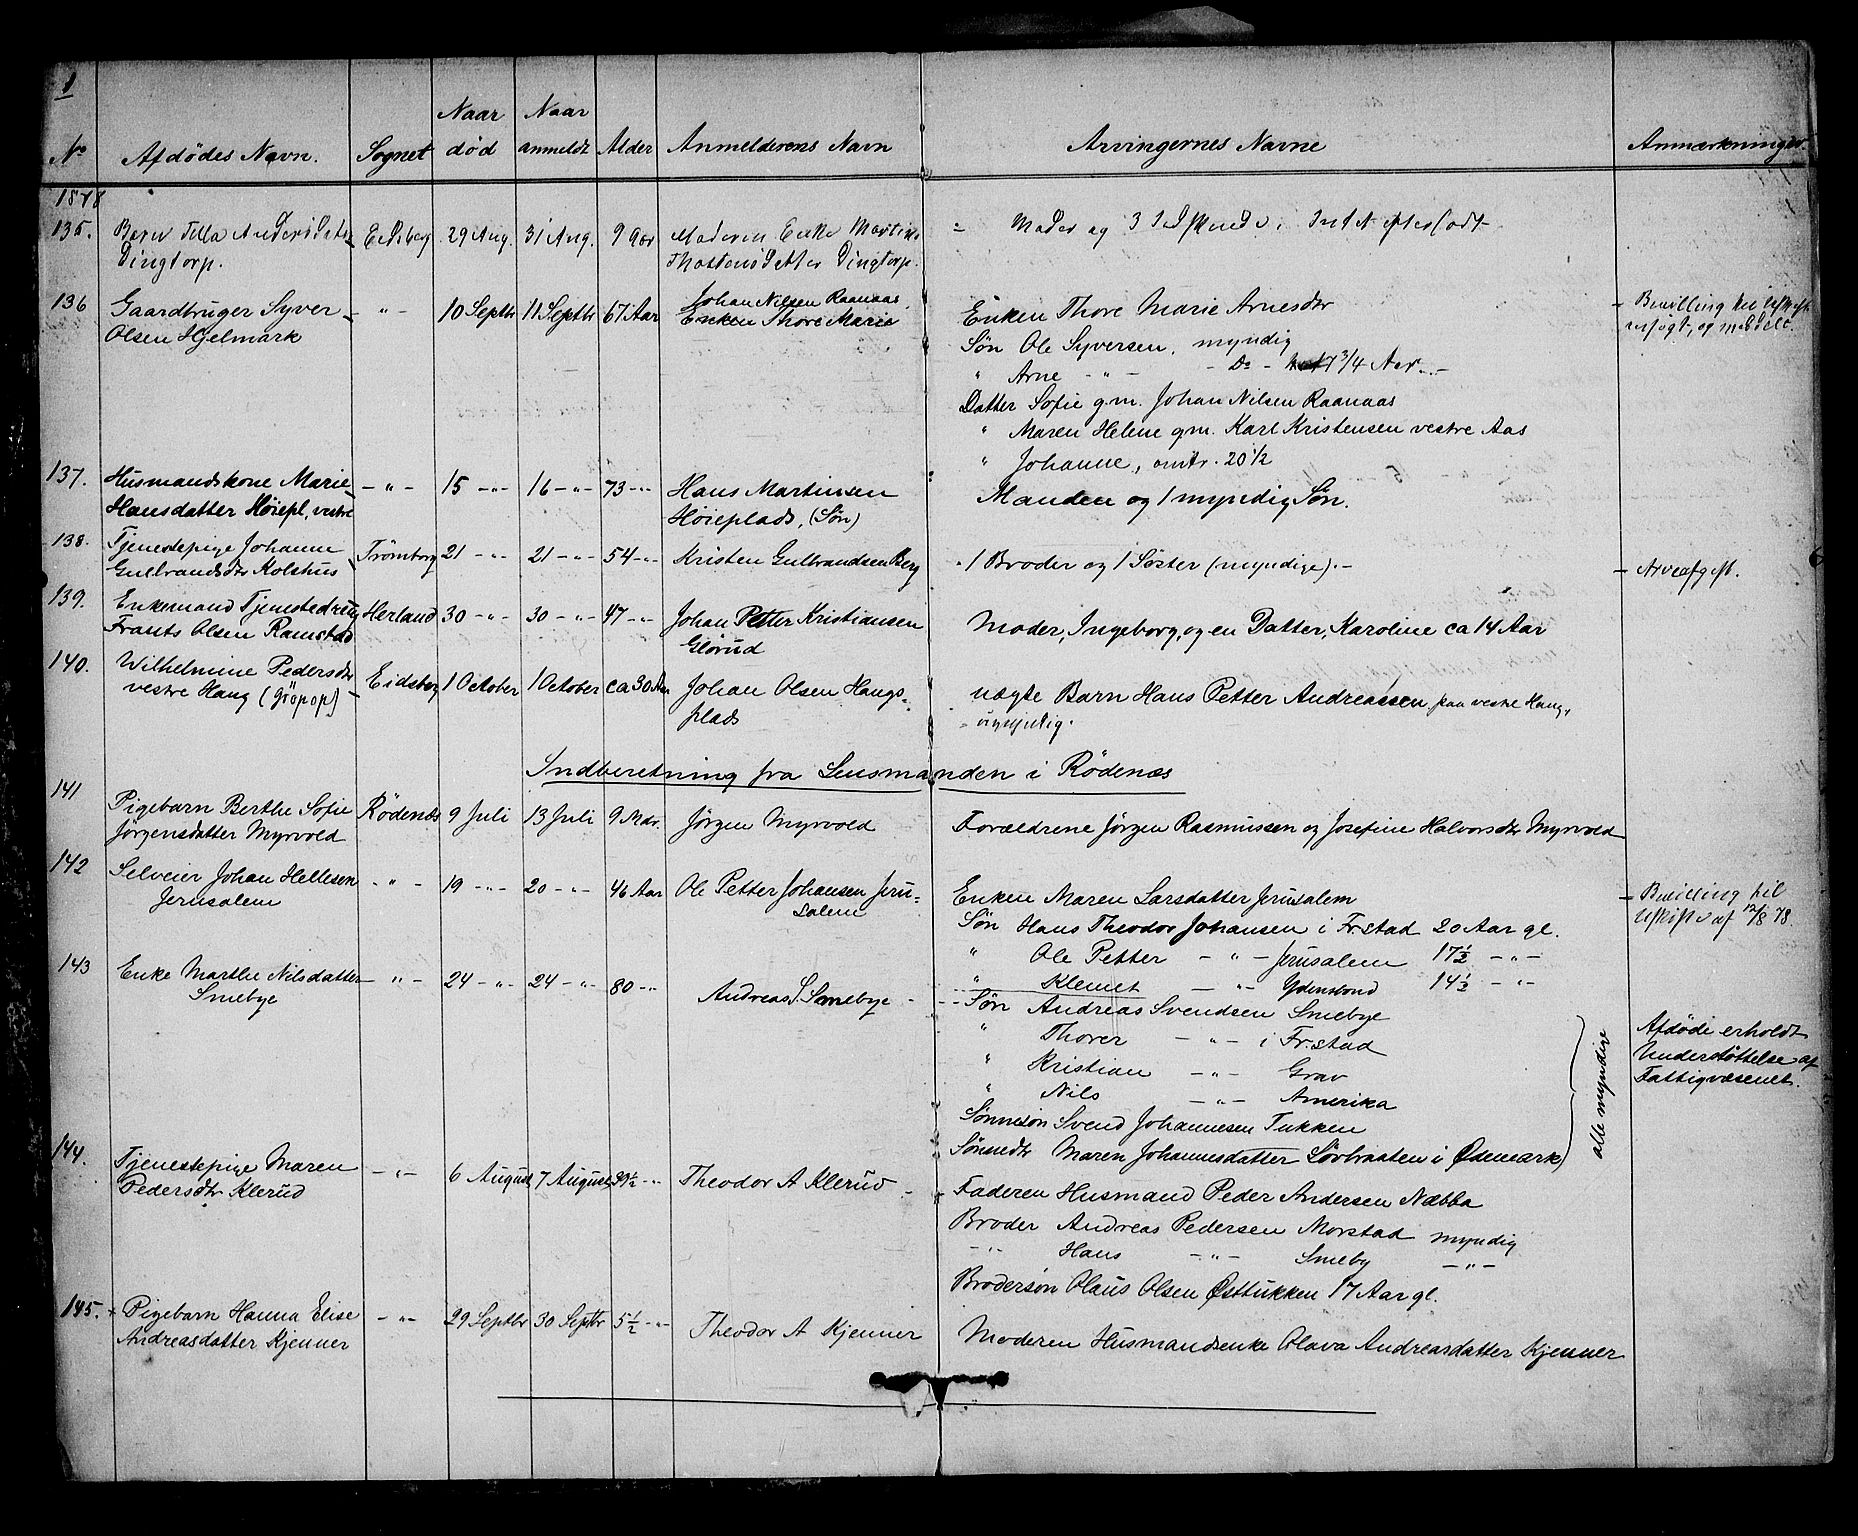 1
No Afdödes Navn. Sognet Naar död Naar anmeldt Alder Anmelderens Navn Arvingernes Navne Anmærkninger
1878
135. Barn Andersdtr Eidsberg 29 Aug. 31 Aug. 9 Aar Moderen Enke - Moder og 3 Sødskende. Intet efterladt
136 Gaardbruger Syver - " - 10 Septbr 11 Septbr 67 Aar Johan Nilsen Raanaas Enken Thore Marie Arnesdtr - Bevilling til
Olsen Hjelmark Enken Thore Marie Søn Ole Syversen, myndig
" Arne - " - - Do - 17 3/4 Aar
Datter Sofie g.m. Johan Nilsen Raanaas
" Maren Helene g.m. Karl Kristensen vestre Aas
" Johanne, omtr. 20 1/2
137. Husmandskone Marie - " - 15 - " - 16 - " - 73 - " - Hans Martinsen Manden og 1 myndig Søn.
Hansdatter Høiepl. vestre Høieplads, (Søn)
138. Tjenestepige Johanne Trömborg 21 - " - 21 - " - 54 - " - Kristen Gulbrandsen Berg 1 Broder og 1 Söster (myndige). - - Arveafgift.
Gulbrandsdtr Kolshus
139. Enkemand Tjenestedreng Herland 30 - " - 30 - " - 47 - " - Johan Petter Kristiansen Moder, Ingeborg, og en Datter, Karoline ca 14 Aar
Frants Olsen Ramstad Glörud
140. Wilhelmine Pedersdtr Eidsberg 1 October 1 October ca 30 Aar Johan Olsen Haugs- uægte Barn Hans Petter Andreassen paa vestre Haug,
vestre Haug plads umyndig.
Indberetning fra Lensmanden i Rödenæs
141 Pigebarn Berthe Sofie Rödenæs 9 Juli 13 Juli 9 Mdr. Jørgen Myrvold Forældrene Jørgen Rasmussen og Josefine Halvorsdtr Myrvold
Jörgensdatter Myrvold
142 Selveier Johan Hellesen - " - 19 - " - 20 - " - 46 Aar Ole Petter Johansen Jeru- Enken Maren Larsdatter Jerusalem - Bevilling til
Jerusalem salem Søn Hans Theodor Johansen i Fr.stad 20 Aar gl. af 12/8 78
" Ole Petter - " - Jerusalem 17 1/2 - " -
" Klemet - " - 14 1/2 - " -
143 Enke Marthe Nilsdatter - " - 24 - " - 24 - " - 80 - " - Andreas S. Smebye - Søn Andreas Svendsen Smebye
Smebye " Thorer - " - i Fr.stad Afdöde erholdt
" Kristian - " - Grav Understöttelse af
" Nils - " - Amerika Fattigvæsenet.
Sönnesön Svend Johannesen Tukken alle myndige
Sönnedtr Maren Johannesdatter Sövbraaten i Ødemark
144. Tjenestepige Maren - " - 6 August 7 August 39 1/2 - " - Theodor A Klerud - Faderen Husmand Peder Andersen Næbba
Pedersdtr Klerud Broder Andreas Pedersen Morstad myndig
- " - Hans - " - Smeby - " -
Brodersön Olaus Olsen Østtukken 17 Aar gl.
145. Pigebarn Hanna Elise - " - 29 Septbr 30 Septbr 5 1/2 - " - Theodor A Kjenner Moderen Husmandsenke Olava Andreasdatter Kjenner
Andreasdatter Kjenner